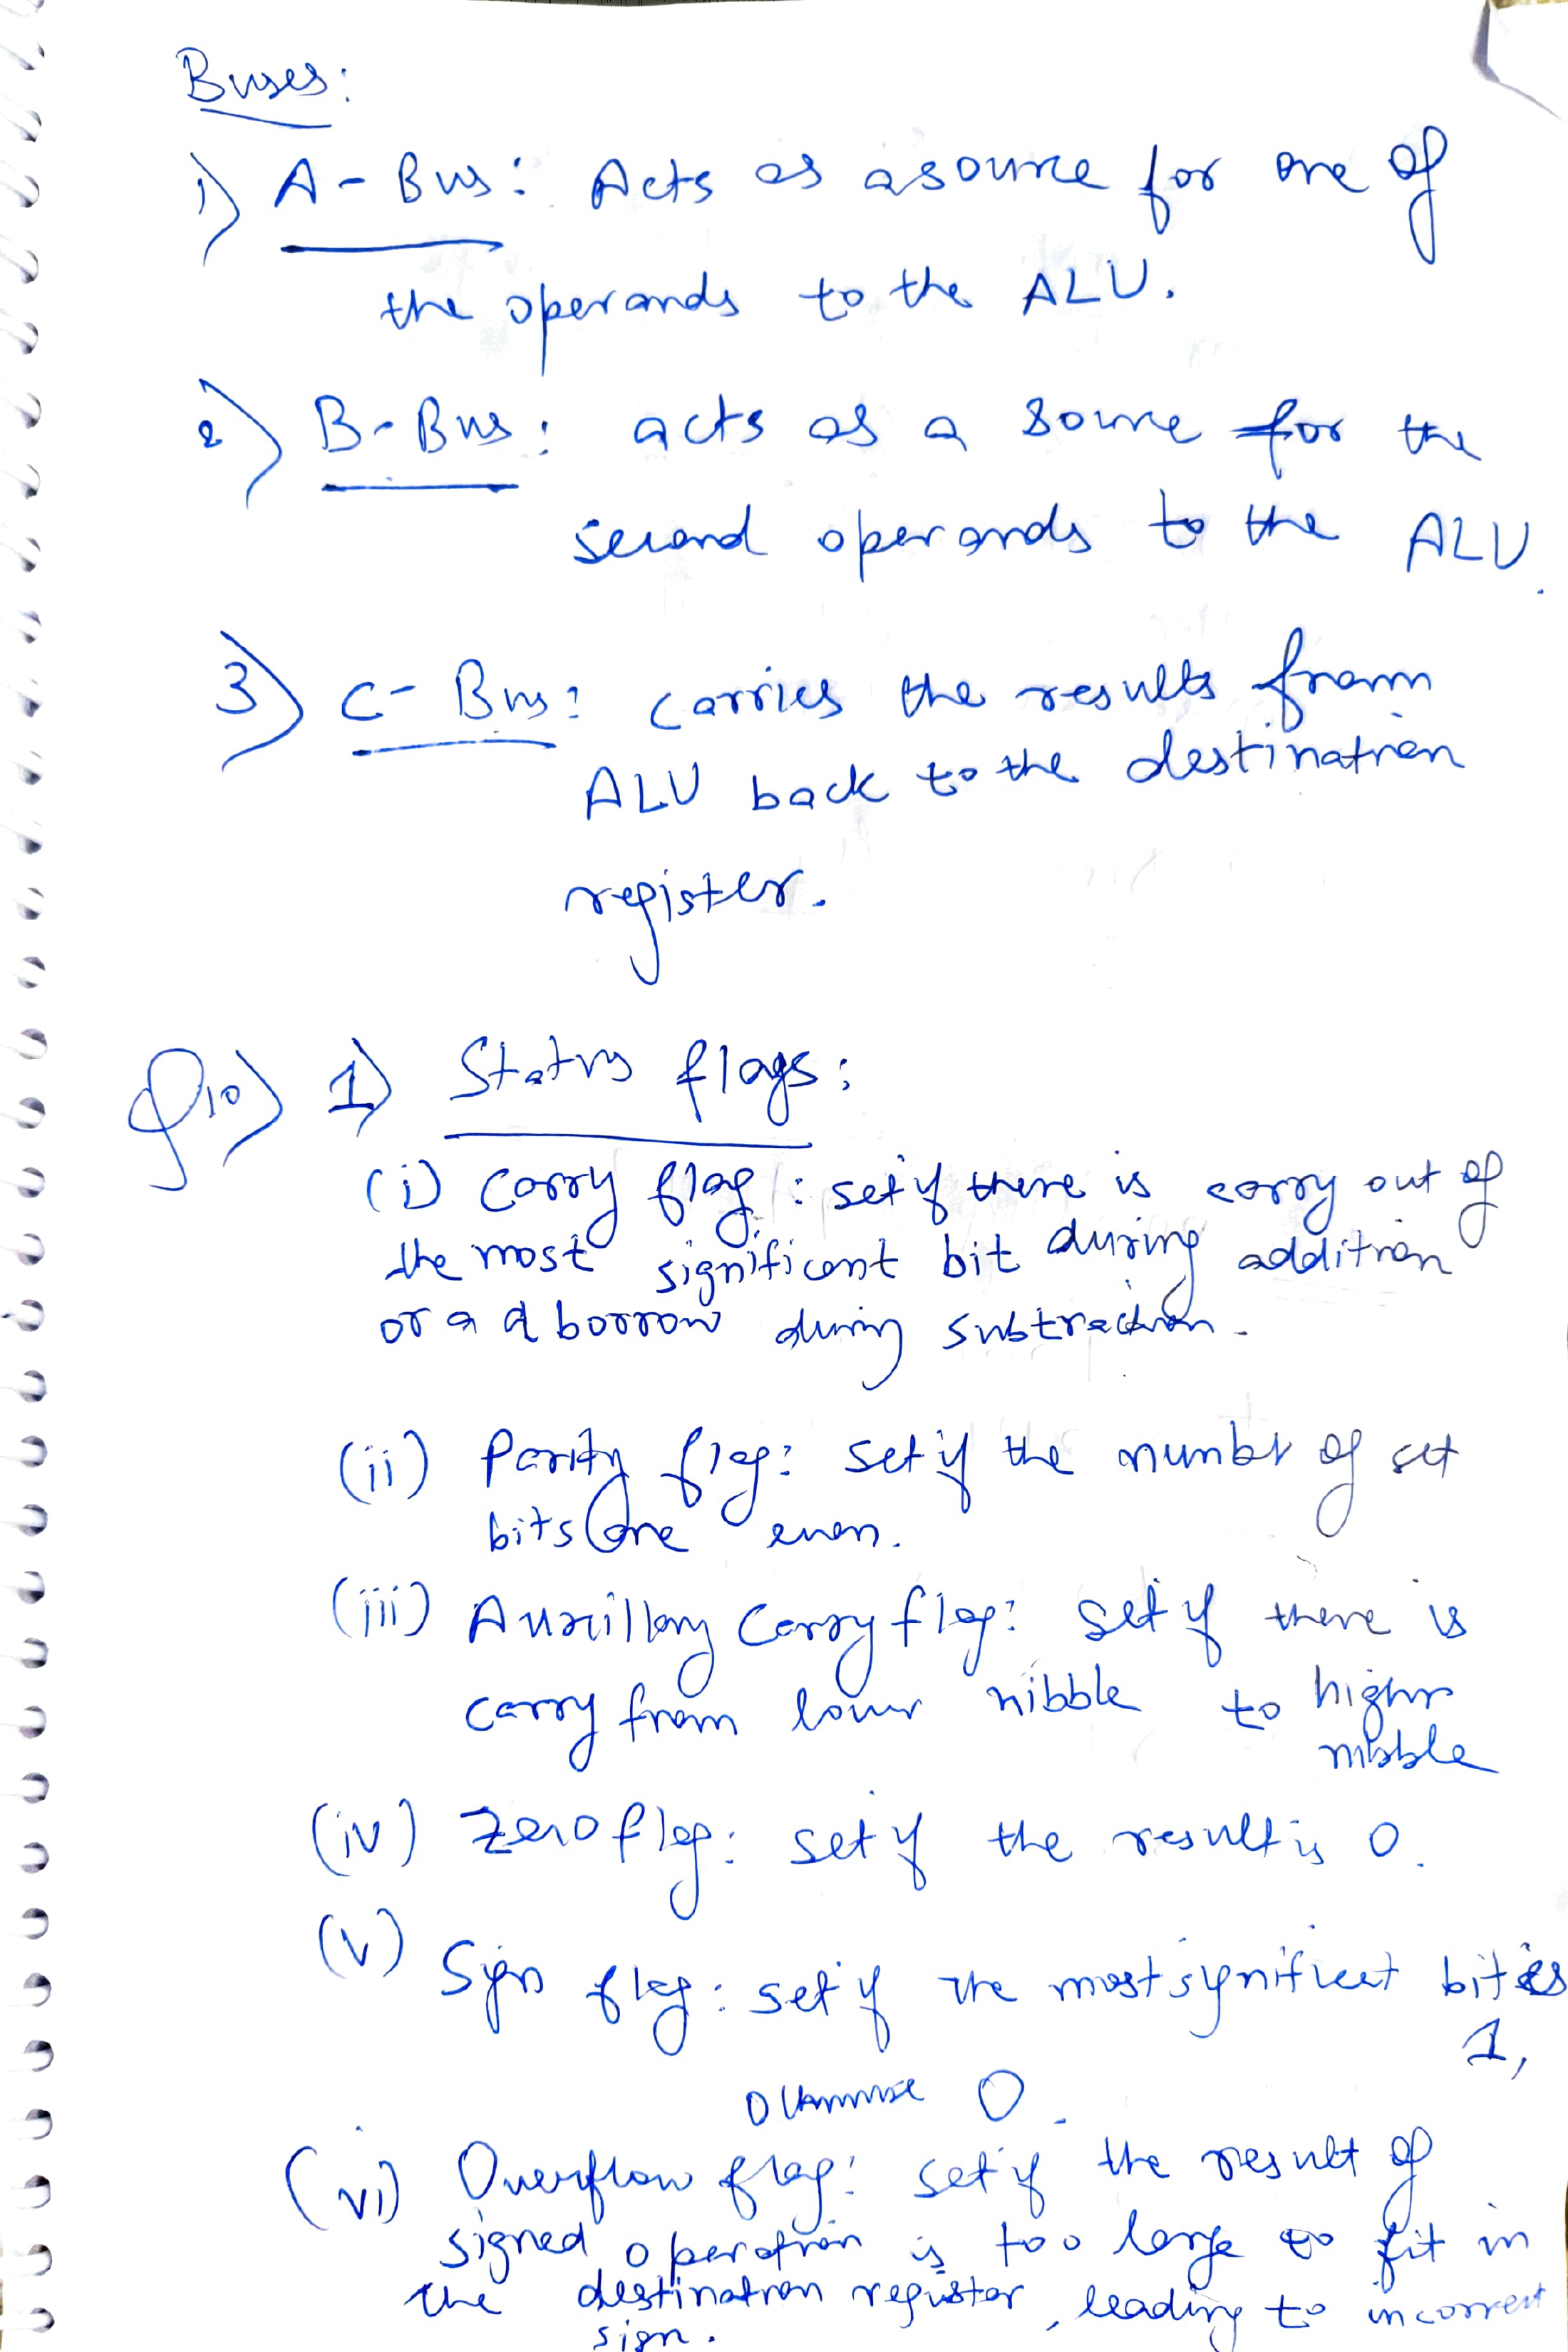 Buses:
1) A-Bus: Acts as a source for one of
the operands to the ALU.
2) B-Bus: acts as a source for the
second operands to the ALU.
3) C-Bus: carries the results from
ALU back to the destination
register.
Q10) 1) Status flags:
(i) Carry flag: set if there is carry out of
the most significant bit during addition
or a a borrow during subtraction.
(ii) Parity flag: set if the number of set
bits are even.
(iii) Auxillary Carry flag: set if there is
carry from lower nibble to higher
nibble
(iv) Zero flag: set if the result is 0.
(v) Sign flag: set if the most significant bit is
1,
Otherwise 0.
(vi) Overflow flag: set if the result of
signed operation is too large to fit in
the destination register, leading to incorrect
sign.